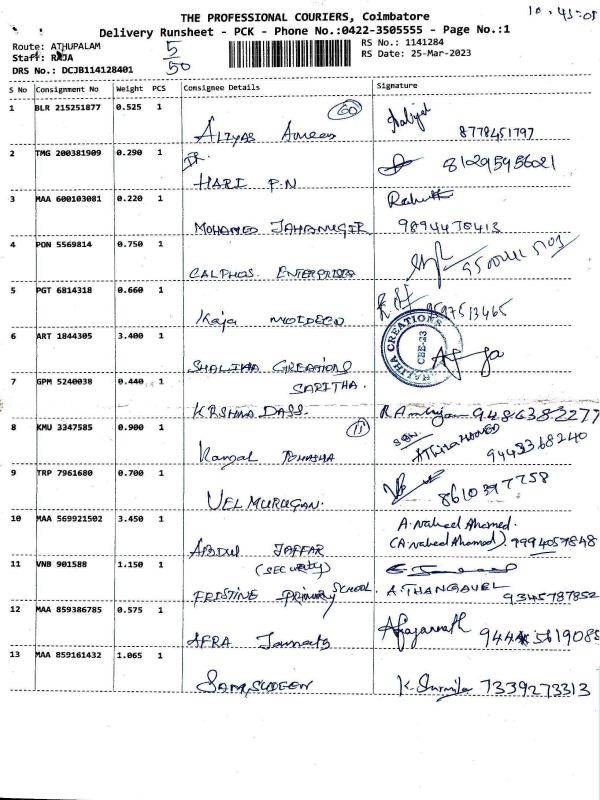 THE PROFESSIONAL COURIERS, Coimbatore
10.45.05
Delivery Runsheet - PCK - Phone No.:0422-3505555 - Page No.:1
Route: ATHUPALAM
Staff: RAJA
DRS No.: DCJB114128401
5/50
RS No.: 1141284
RS Date: 25-Mar-2023
S No Consignment No Weight PCS Consignee Details Signature
1 BLR 215251877 0.525 1
8778451797
2 TMG 200381909 0.290 1
HARI P.N
3 MAA 600103081 0.220 1
MOHAMED JAHANGIR
4 PON 5569814 0.750 1
CALPHOS ENTERPRISES
5 PGT 6814318 0.660 1
Kaja MOIDEEN 9597513465
6 ART 1844305 3.400 1
SHALIHA CREATIONS
CREATIONS
CBE-23
7 GPM 5240038 0.440 1
SARITHA.
KRSHNA DASS. 9486382277
8 KMU 3347585 0.900 1
11
9443368240
9 TRP 7961680 0.700 1
VELMURUGAN. 8610397758
10 MAA 569921502 3.450 1
A. Naheed Ahamed.
ABDUL JAFFAR (A. Naheed Ahamed). 9994057848
11 VNB 901588 1.150 1
(SECURITY)
PRISTINE PRIMARY SCHOOL. A. THANGAVEL 9345787852
12 MAA 859386785 0.575 1
AFRA Jannath
13 MAA 859161432 1.065 1
SAMSUDEEN K. Sharmila 7339273313